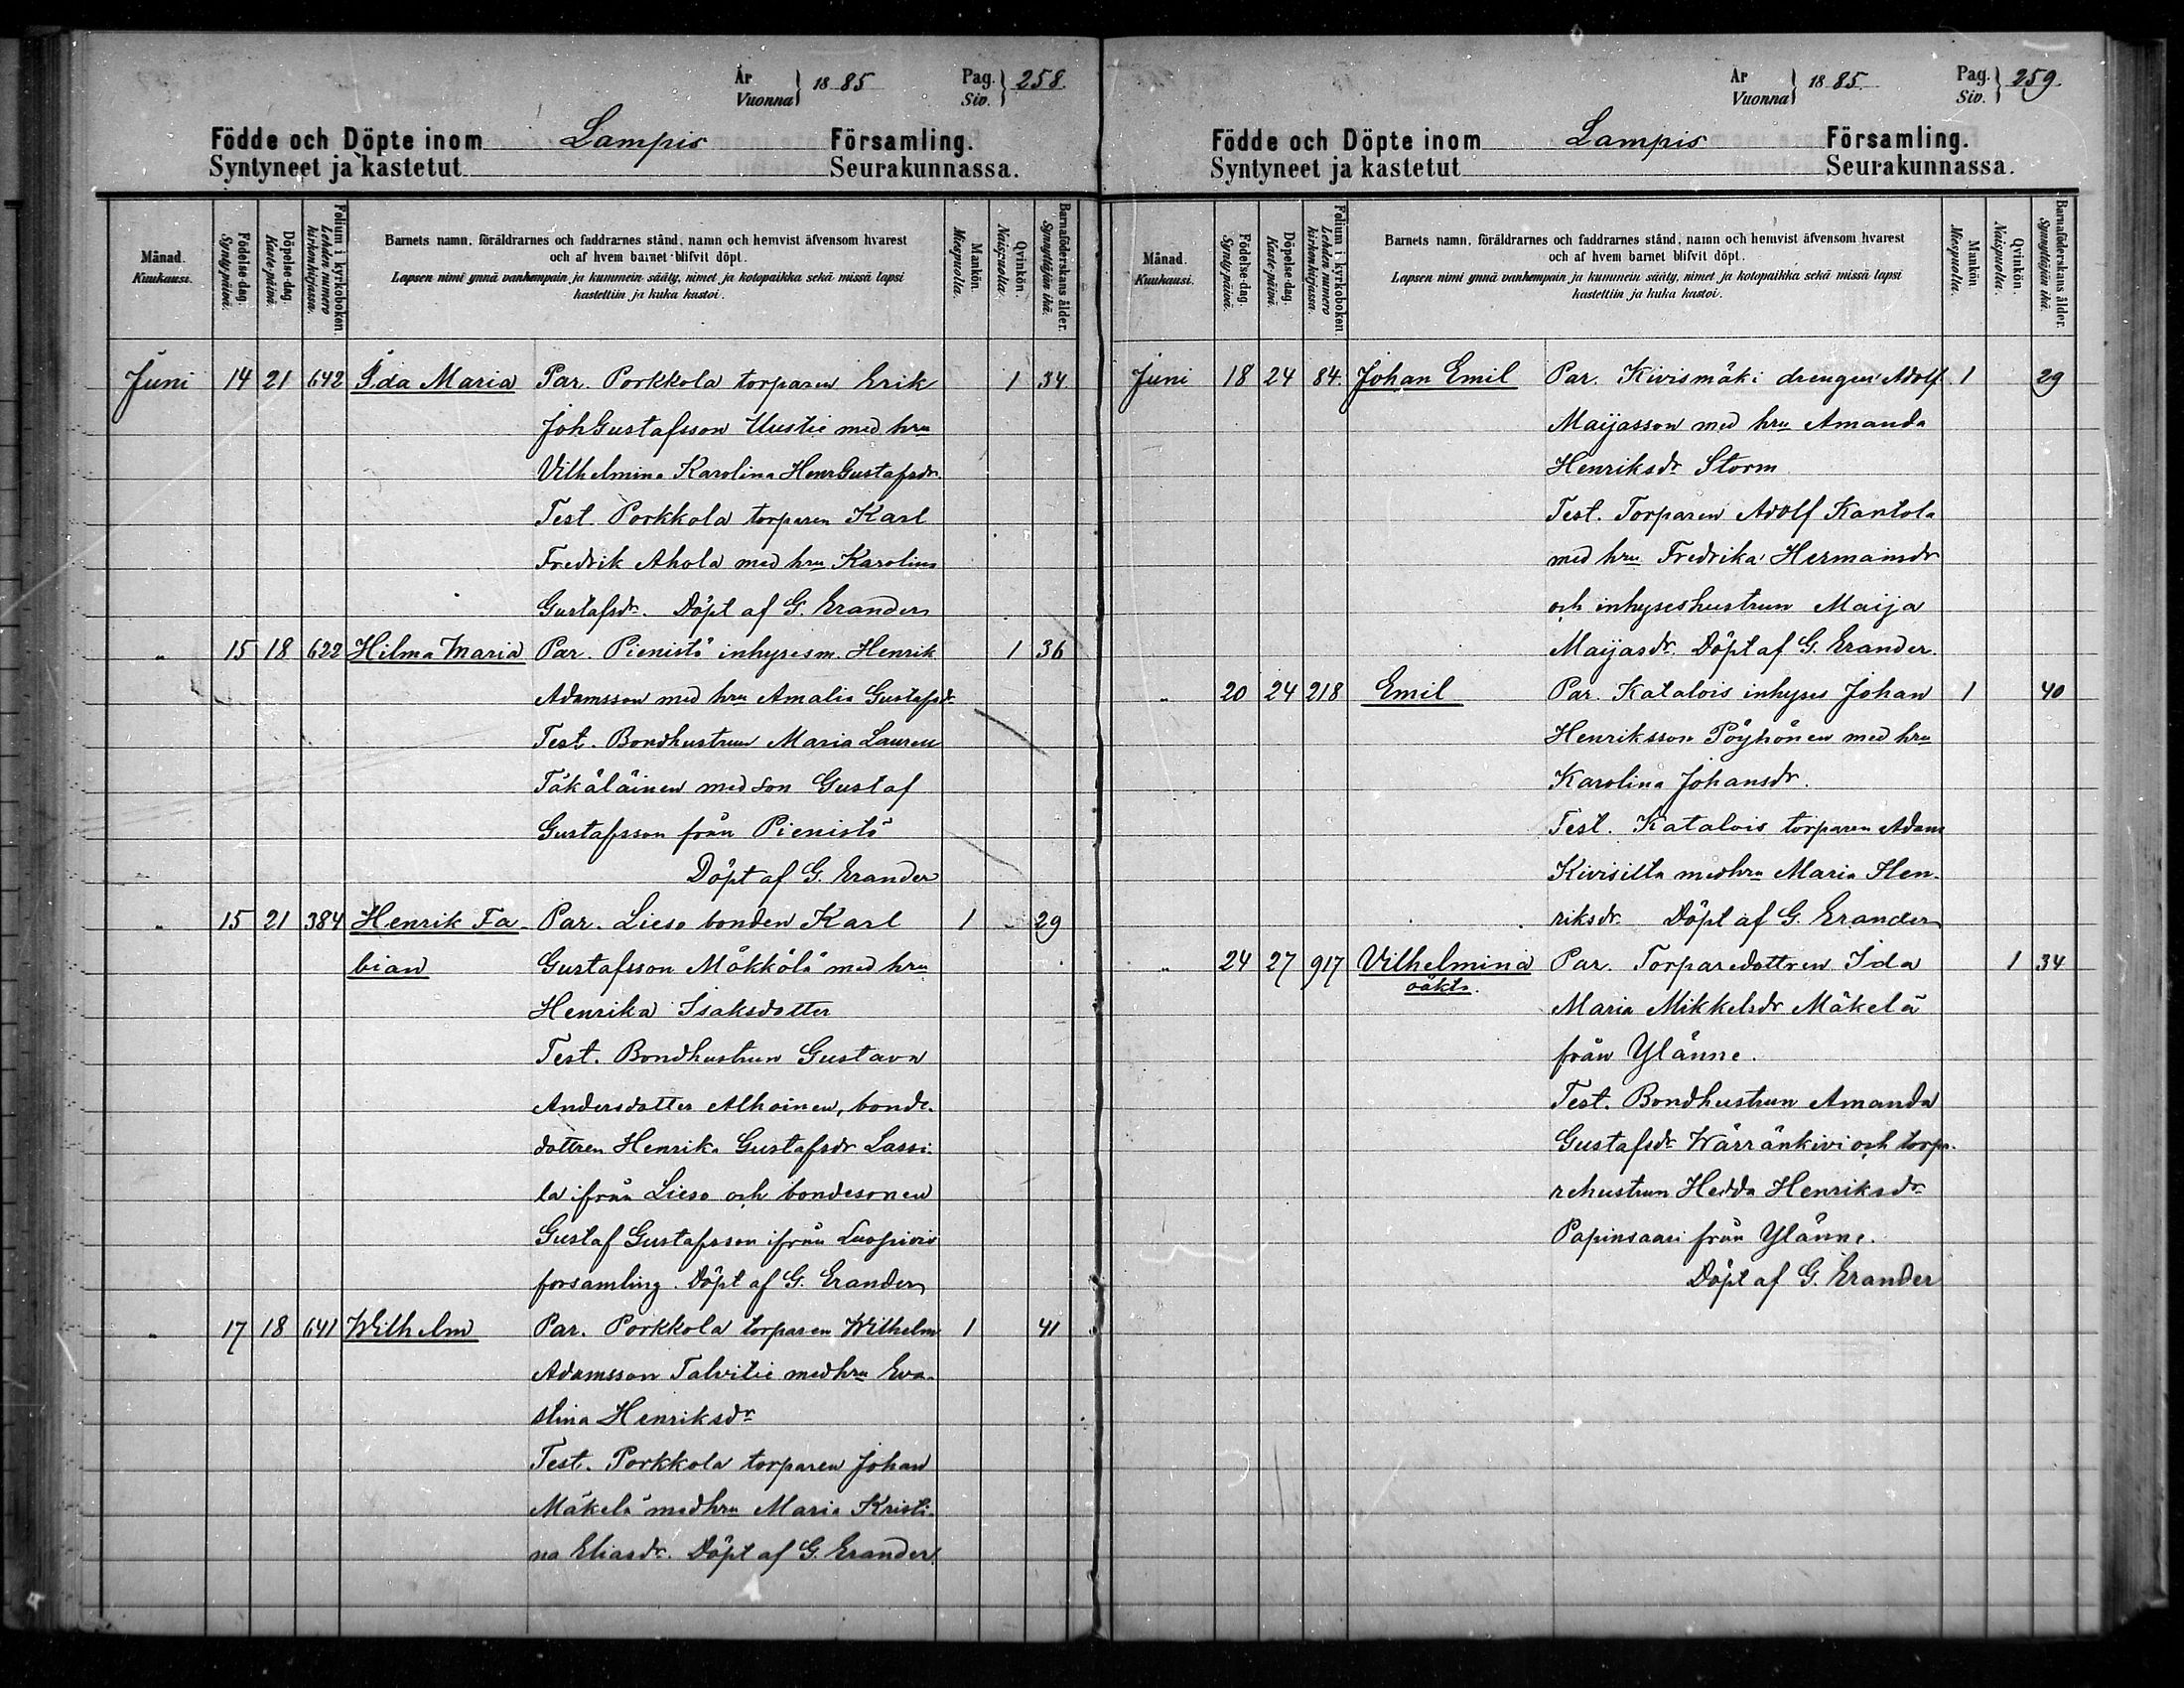 År
Vuonna } 1885
Pag.
Siv. } 258.
Födde och Döpte inom Lampis Församling.
Syntyneet ja kastetut Seurakunnassa.
Månad.
Kuukausi.
Födelse-dag.
Synty-päivä.
Döpelse-dag.
Kaste-päivä.
Folium i kyrkoboken.
Lehden numero
kirkonkirjassa.
Barnets namn, föräldrarnes och faddrarnes stånd, namn och hemvist äfvensom hvarest
och af hvem barnet blifvit döpt.
Lapsen nimi ynnä vanhempain ja kummein sääty, nimet ja kotopaikka sekä missä lapsi
kastettiin ja kuka kastoi.
Mankön.
Miespuolia.
Qvinkön.
Naispuolia.
Barnaföderskans ålder.
Synnyttäjän ikä.
Juni 14 21 642 Ida Maria Par. Porkkola torparen Erik 1 34
JohGustafsson Uustie med hru
Vilhelmina Karolina HenrGustafsdr.
Test. Porkkola torparen Karl
Fredrik Ahola med hru Karolina
Gustafsdr. Döpt af G. Erander
" 15 18 622 Hilma Maria Par. Pienistö inhysesm. Henrik 1 36
Adamsson med hru Amalia Gustafsdr
Test. Bondhustrun Maria Lauren
Täkäläinen med son Gustaf
Gustafsson från Pienistö
Döpt af G. Erander
" 15 21 384 Henrik Fa- Par. Lieso bonden Karl 1 29
bian Gustafsson Mökkölä med hru
Henrika Isaksdotter
Test. Bondhustrun Gustava
Andersdotter Alhoinen, bonde-
dottren Henrika Gustafsdr Lassi-
la ifrån Lieso och bondesonen
Gustaf Gustafsson ifrån Luopiois
forsamling. Döpt af G. Erander
" 17 18 641 Wilhelm Par. Porkkola torparen Wilhelm 1 41
Adamsson Talvitie med hru Eva-
stina Henriksdr
Test. Porkkola torparen Johan
Mäkelä med hru Maria Kristi-
na Eliasdr. Döpt af G. Erander.
År
Vuonna } 1885.
Pag.
Siv. } 259.
Födde och Döpte inom Lampis Församling.
Syntyneet ja kastetut Seurakunnassa.
Månad.
Kuukausi.
Födelse-dag.
Synty-päivä.
Döpelse-dag.
Kaste-päivä.
Folium i kyrkoboken.
Lehden numero
kirkonkirjassa.
Barnets namn, föräldrarnes och faddrarnes stånd, namn och hemvist äfvensom hvarest
och af hvem barnet blifvit döpt.
Lapsen nimi ynnä vanhempain ja kummein sääty, nimet ja kotopaikka sekä missä lapsi
kastettiin ja kuka kastoi.
Mankön.
Miespuolia.
Qvinkön.
Naispuolia.
Barnaföderskans ålder.
Synnyttäjän ikä.
Juni 18 24 84. Johan Emil Par. Kivismäki drengen Adolf 1 29
Maijasson med hru Amanda
Henriksdr Storm
Test. Torparen Adolf Kantola
med hru Fredrika Hermansdr
och inhyseshustrun Maija
Maijasdr. Döpt af G. Erander.
" 20 24 218 Emil Par. Katalois inhyses Johan 1 40
Henriksson Pöyhönen med hru
Karolina Johansdr.
Test. Katalois torparen Adam
Kivisilta med hru Maria Hen-
riksdr. Döpt af G. Erander
" 24 27 917 Vilhelmina Par. Torparedottren Ida 1 34
oäkta. Maria Mikkelsdr Mäkelä
från Ylänne.
Test. Bondhustrun Amanda
Gustafsdr Wärränkivi och torpa-
rehustrun Hedda Henriksdr
Papinsaari från Ylänne.
Döpt af G. Erander